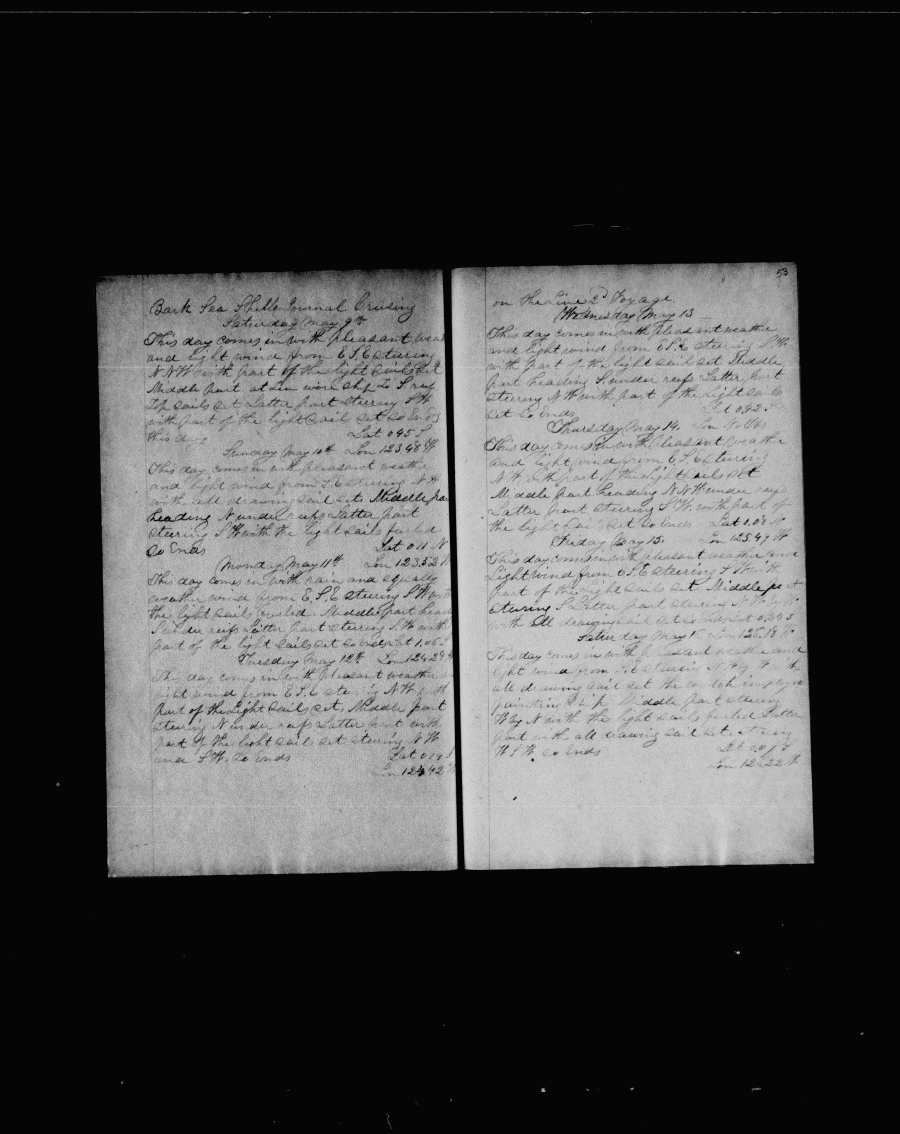 Bark Sea Shells Journal Cruising
Saturday May 9th
This day comes in with pleasant weat
and light wind from E S E steering
N N W with part of the light sails set
Middle part at 2 am wore ship to S reef
Top sails set Latter part steering S W
with part of the light sail set so Ends
this day Lat 0.45 S
Sunday May 10th Lon 123.48 W
This day comes in with pleasant weather
and light wind from S E steering N W
with all drawing sail set Middle par
heading N under reefs Latter part
steering S W with the light sails furled
So Ends Lat 0.11 N
Monday May 11th Lon 123.53 W
This day comes in with rain and squally
weather wind from E S E steering S W with
the light sails furled Middle part head
S under reefs Latter part steering S. W with
part of the light sails set so Ends Lat 1.06 S
Tuesday May 12th Lon 124.29 W
This day comes in with pleasant weather
light wind from E S E steering N W with
part of the light sails set. Middle part
steering N under reefs Latter part with
part of the light sail set steering N W
and S W. So Ends Lat 0.19 S
Lon 124.42 W
53
on the Line 2d Voyage
Wednesday May 13
This day comes in with pleasant weather
and light wind from E S E steering
with part of the light sail set Middle
part heading S under reefs Latter part
steering N W with part of the light sails
set So Ends Lat 0.42 S
Thursday May 14. Lon No Obs
This day comes in with pleasant weather
and light wind from E S E steering
N W with part of the light sails set
Middle part heading N N W under reefs
Latter part steering S W. with part of
the light sail set So Ends Lat 1.08 N
Friday May 15. Lon 125.49 W
This day comes in with pleasant weather and
Light wind from E S E steering S W with
part of the light sails set Middle part
steering S Latter part steering
with all drawing sail set So Ends Lat
Saturday May Lon
This day comes in with pleasant weather and
light wind from S E steering with
all drawing sail set the watch employed
painting ship Middle part steering
W by N with the light sails furled Latter
part with all drawing sail set steering
W S W So Ends Lat
Lon